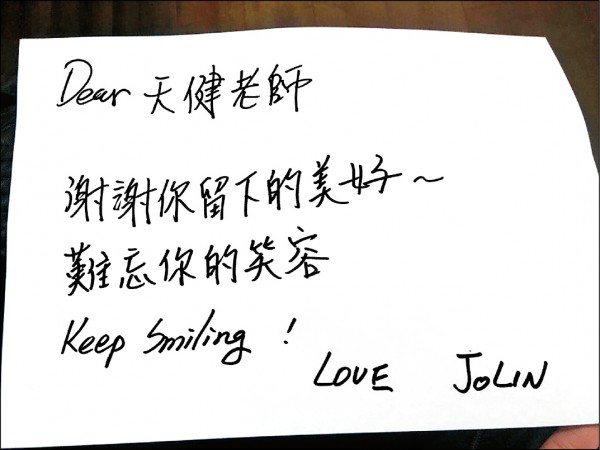 Dear 天健老師
谢謝你留下的美好～
難忘你的笑容
Keep Smiling !
LOVE JOLIN